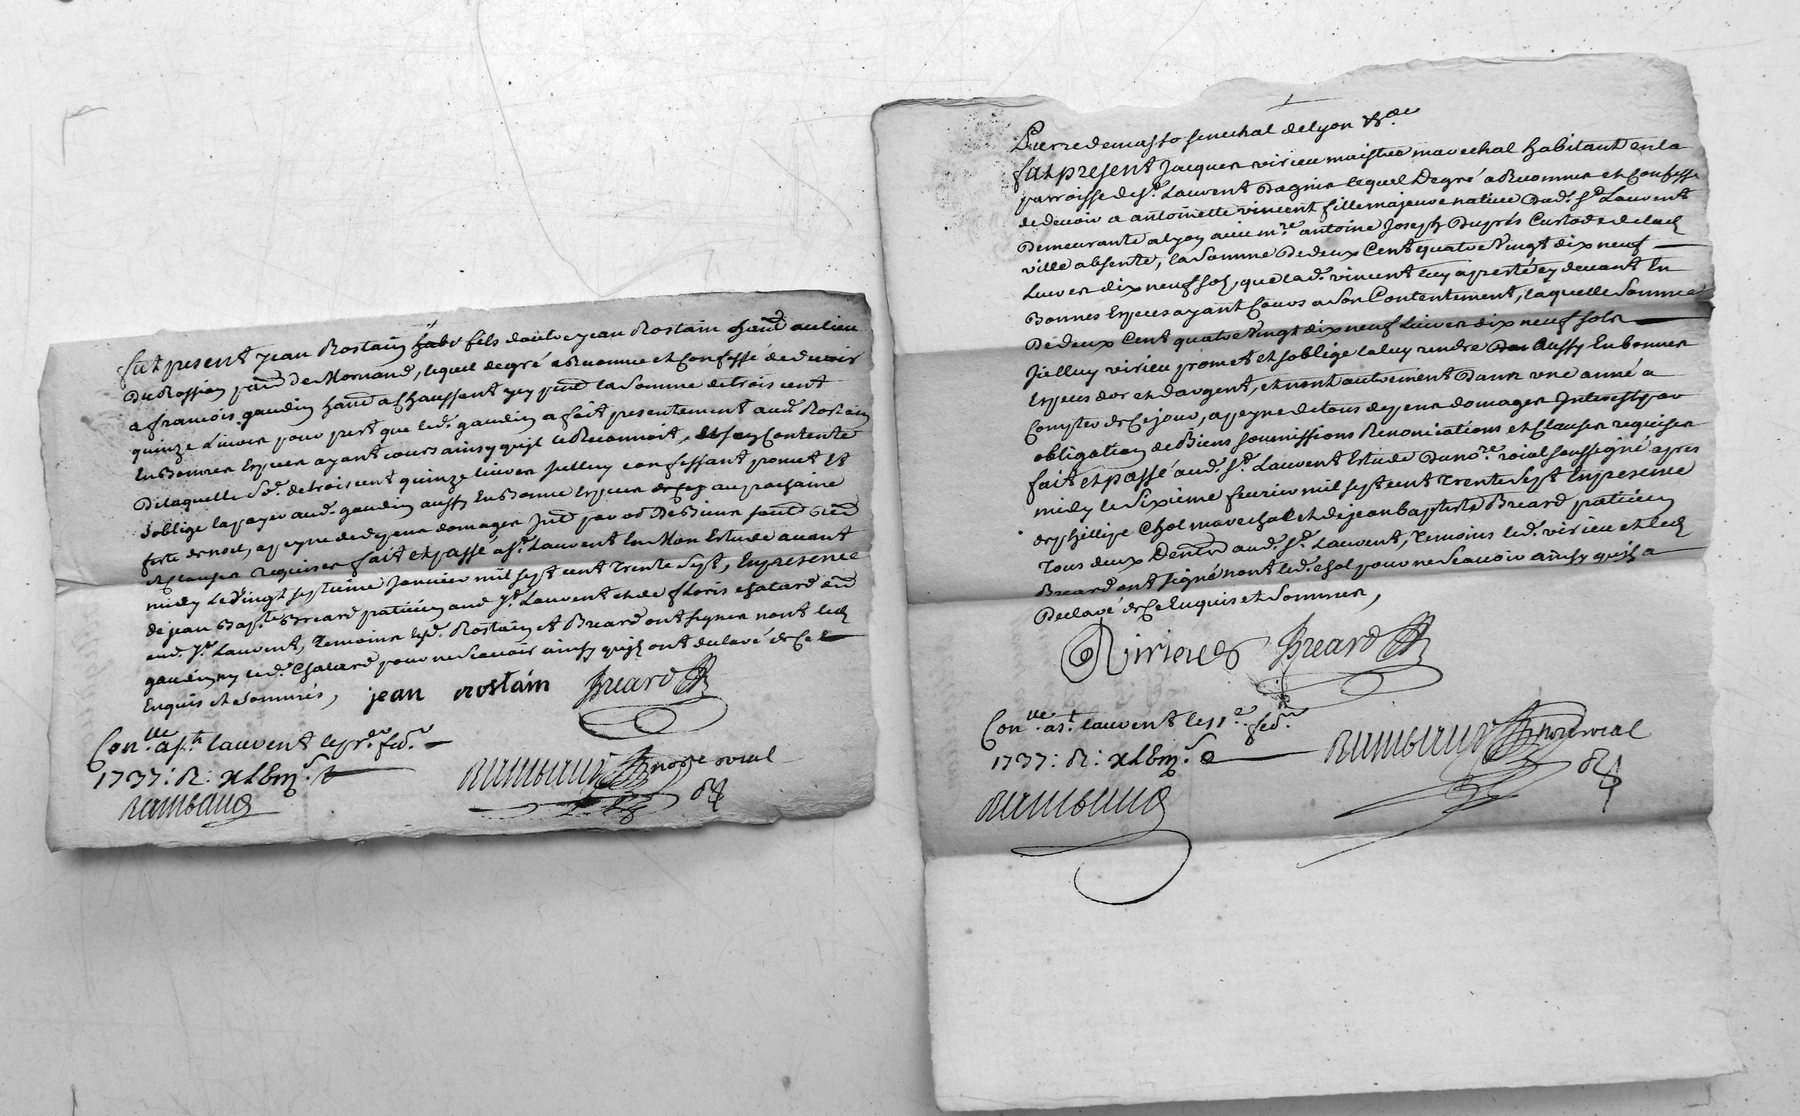 fut present jean Rostain habt fils d'autre jean Rostain habt au lieu
Du Rossion parr. de Mornand, lequel de gré a Reconnu et Confessé de devoir
a francois gaudin habt a Chaussant icy pnt la Somme de trois cent
quinze Livres pour prest que led. gaudin a fait presentement aud. Rostain
En Bonnes Especes ayant cours ainsy qu'il le Reconnoit, et sen Contente
De laquelle Se. de trois cent quinze livres Jelluy confessant promet et
s'oblige la payer aud. gaudin aussy En Bonne Especes au prochaine
feste de noel, a peyne de depens domages Int. par ob. De Biens
et Clauses requises fait et passé a St. Laurent En Mon Estude avant
midy Le Vingt septieme Janvier mil sept cent Trente Sept, En presence
de jean Bapte. Breard patticien aud. St. Laurent et de floris chatard
aud. St. Laurent, Temoins led. Rostain et Breard ont signes non led.
gaudin ny led. Chatard pour ne Scavoir ainsy quils ont declaré de Ce
Enquis et Sommés,
jean rostain Breard
Conlle. a St. laurent le pr. fed.
1737: R:
Rimbaud
Rimbaud nore roial
Pierre demasso senechal de lyon &ca.
fut present Jacques virieu maistre marechal habitant en la
parroisse de St. Laurent Dagnis lequel De gré a Reconnu et Confessé
de devoir a antoinette vincent fille majeure native Dud. St. Laurent
Demeurante a lyon avec mre. antoine Joseph Duprés Custode de lad.
ville absente, la Somme De deux Cent quatre Vingt dix neuf
Livres dix neuf sols, que lad. vincent luy a presté cy devant En
Bonnes Especes ayant Cours a Son Contentement, laquelle Somme
De deux Cent quatre Vingt dix neuf Livres dix neuf sols
Jcelluy virieu promet et s'oblige la luy rendre Aussy En bonnes
Especes d'or et d'argent, et non autrement Dans une année a
Compter de Ce jour, a peyne de tous depens domages Interests par
obligation de Biens soumissions Renonciations et Clauses requises
fait et passé aud. St. Laurent Estude Du nore. roial soussigné apres
midy le Sixieme fevrier mil sept cent Trente Sept En presence
de phillipe Chol marechal et de jean baptiste Breard patticien
Tous deux Demts aud. St. Laurent, Temoins led. virieu et led.
Breard ont signé non led. Chol pour ne Scavoir ainsy quil a
Declaré de Ce Enquis et Sommés,
Virieu Breard
Conlle. a St. laurent le 11e. fed.
1737: R:
Rimbaud
Rimbaud nore roial